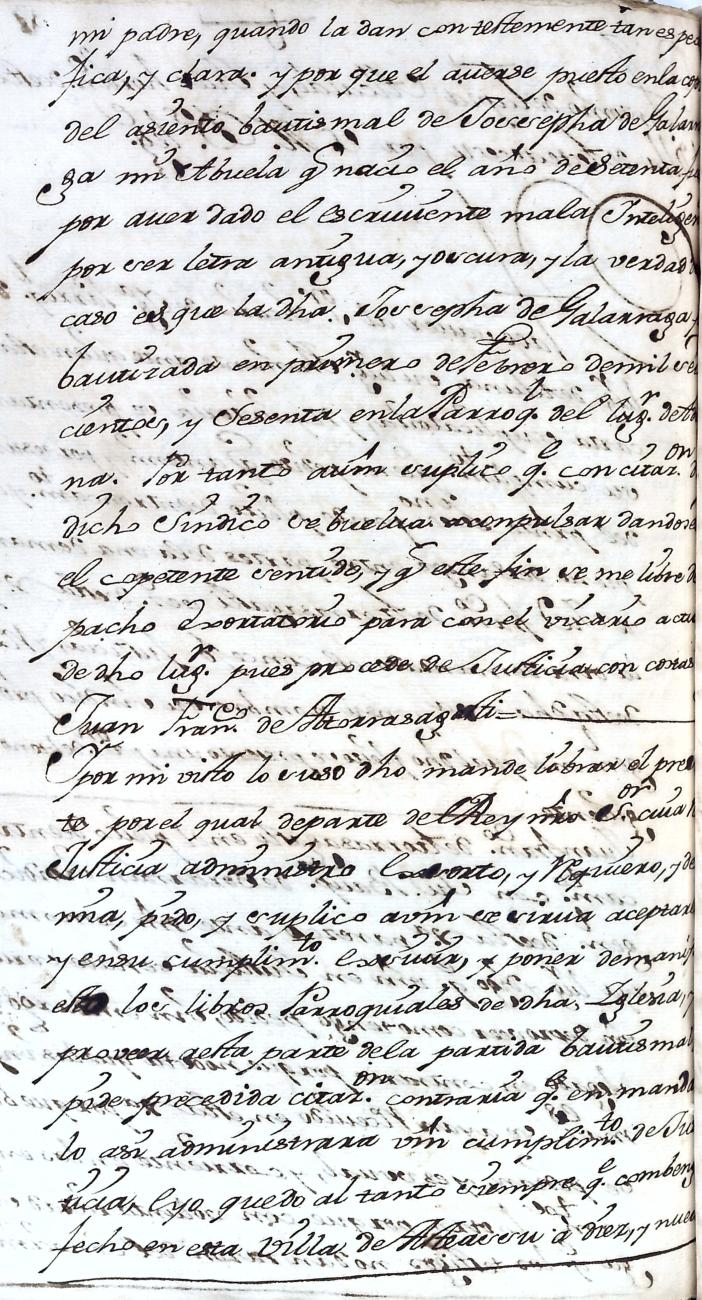 mi padre, quando la dan contestemente tan especi
fica, y clara. y por que el averse puesto en la cop
del asiento bautismal de Jossepha de Galarra
ga mi Abuela q nacio el año de Setenta fu
por aver dado el escriviente mala Inteligen
por ser letra antigua, y oscura, y la verdad d
caso es que la dha Jossepha de Galarraga f
bautizada en primero de Febrero de mil se
cientos, y Sesenta en la Parroql. del lugr. de
na. Por tanto a vm suplico qe. con citaron. d
dicho Sindico se buelva a conpulsar dandose
el copetente sentido, y q este fin se me libre d
pacho Exortatorio para con el vicario actu
de dho lugr. pues procede de Justicia con costas
Juan Franco. de Atorrasagasti =
Y por mi visto lo suso dho mande librar el pres
te por el qual de parte del Rey nro Sor. cuia R
Justicia administro Exorto, y Requiero, y de
mia, pido, y suplico a vm se sirva aceptar
y en su cumplimto. Executar, y poner de manif
esto los libros Parroquiales de dha Iglesia, y
proveer a esta parte de la partida bautismal
pide precedida citaron. contraria qe. en manda
lo asi administrara vm cumplimto. de Jus
ticia, e yo quedo al tanto siempre qe. combeng
fecho en esta Villa de Asteasu a diez, y nuev